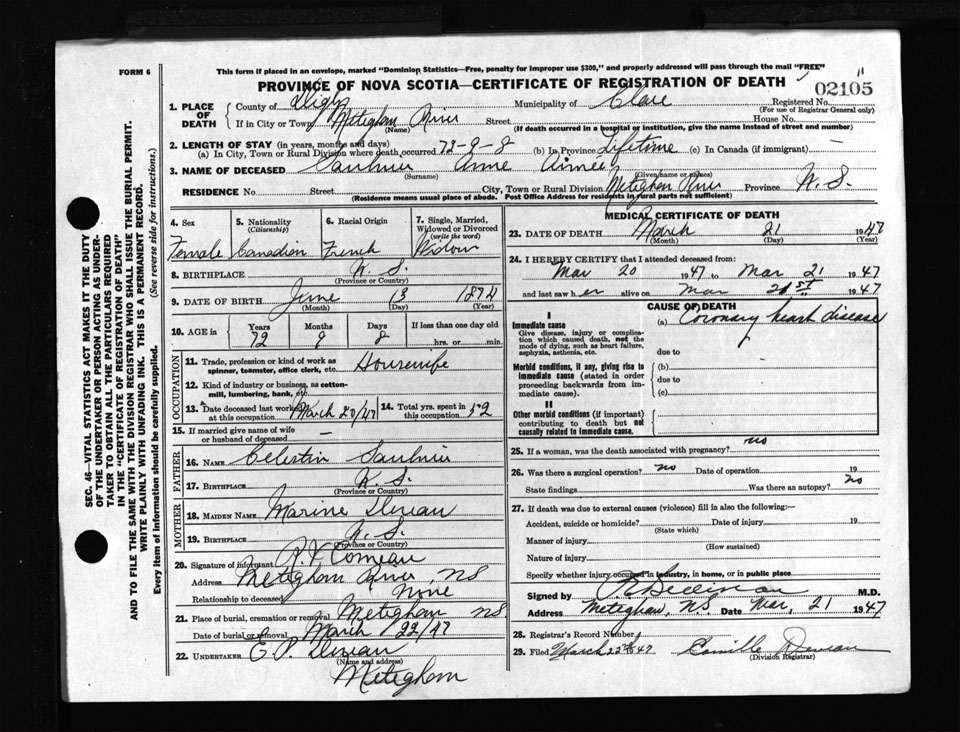 FORM 6
This form if placed in an envelope, marked "Dominion Statistics—Free, penalty for improper use $300," and properly addressed will pass through the mail "FREE"
PROVINCE OF NOVA SCOTIA—CERTIFICATE OF REGISTRATION OF DEATH
02105
1. PLACE OF DEATH County of Digby Municipality of Clare Registered No.
(For use of Registrar General only)
If in City or Town Meteghan River Street House No.
(Name) (If death occurred in a hospital or institution, give the name instead of street and number)
2. LENGTH OF STAY (in years, months and days)
(a) In City, Town or Rural Division where death occurred 72-9-8 (b) In Province Lifetime (c) In Canada (if immigrant) —
3. NAME OF DECEASED Saulnier Anne Aimée
(Surname) (Given name or names)
RESIDENCE No. Street City, Town or Rural Division Meteghan River Province N. S.
(Residence means usual place of abode. Post Office Address for residents in rural parts not sufficient)
SEC. 46—VITAL STATISTICS ACT MAKES IT THE DUTY
OF THE UNDERTAKER OR PERSON ACTING AS UNDER-
TAKER TO OBTAIN ALL THE PARTICULARS REQUIRED
IN THE "CERTIFICATE OF REGISTRATION OF DEATH"
AND TO FILE THE SAME WITH THE DIVISION REGISTRAR WHO SHALL ISSUE THE BURIAL PERMIT.
WRITE PLAINLY WITH UNFADING INK. THIS IS A PERMANENT RECORD.
Every item of Information should be carefully supplied. (See reverse side for instructions.)
4. Sex 5. Nationality (Citizenship) 6. Racial Origin 7. Single, Married, Widowed or Divorced (write the word)
Female Canadian French Widow
8. BIRTHPLACE N. S.
(Province or Country)
9. DATE OF BIRTH June 13 1874
(Month) (Day) (Year)
10. AGE in Years Months Days If less than one day old
72 9 8 hrs. or min.
OCCUPATION
11. Trade, profession or kind of work as spinner, teamster, office clerk, etc. Housewife
12. Kind of industry or business, as cotton-mill, lumbering, bank, etc.
13. Date deceased last worked at this occupation March 20/47 14. Total yrs. spent in this occupation 52
15. If married give name of wife or husband of deceased —
FATHER
16. NAME Celestin Saulnier
17. BIRTHPLACE N. S.
(Province or Country)
MOTHER
18. MAIDEN NAME Marine
19. BIRTHPLACE N. S.
(Province or Country)
20. Signature of informant Comeau
Address Meteghan River, NS
Relationship to deceased None
21. Place of burial, cremation or removal Meteghan NS
Date of burial or removal March 22/47
22. UNDERTAKER E. P.
(Name and address)
Meteghan
MEDICAL CERTIFICATE OF DEATH
23. DATE OF DEATH March 21 1947
(Month) (Day)
24. I HEREBY CERTIFY that I attended deceased from:
Mar 20 1947 to Mar 21 1947
and last saw her alive on Mar 21st 1947
CAUSE OF DEATH
I
Immediate cause
Give disease, injury or complication which caused death, not the mode of dying, such as heart failure, asphyxia, asthenia, etc.
(a) Coronary heart disease
due to
Morbid conditions, if any, giving rise to immediate cause (stated in order proceeding backwards from immediate cause).
(b)
due to
(c)
II
Other morbid conditions (if important) contributing to death but not causally related to immediate cause.
25. If a woman, was the death associated with pregnancy? no
26. Was there a surgical operation? no Date of operation 19
State findings Was there an autopsy? no
27. If death was due to external causes (violence) fill in also the following:—
Accident, suicide or homicide? Date of injury 19
(State which)
Manner of injury
(How sustained)
Nature of injury
Specify whether injury occurred in industry, in home, or in public place
Signed by M.D.
Address Meteghan, N.S. Date Mar, 21 1947
28. Registrar's Record Number
29. Filed March 22nd 1947 Camille
(Division Registrar)